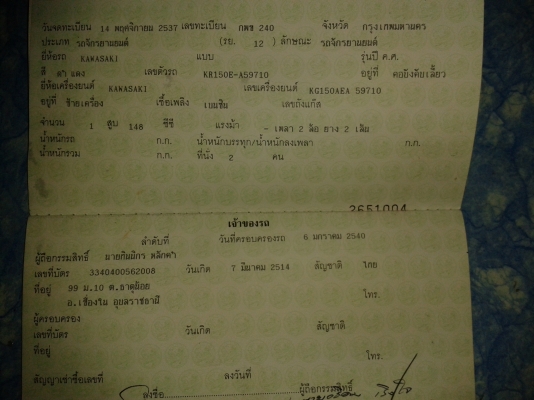 วันจดทะเบียน 14 พฤศจิกายน 2537 เลขทะเบียน กตช 240 จังหวัด กรุงเทพมหานคร
ประเภท รถจักรยานยนต์ (รย. 12 ) ลักษณะ รถจักรยานยนต์
ยี่ห้อรถ KAWASAKI แบบ รุ่นปี ค.ศ.
สี ดำ แดง เลขตัวรถ KR150E-A59710 อยู่ที่ คอบังคับเลี้ยว
ยี่ห้อเครื่องยนต์ KAWASAKI เลขเครื่องยนต์ KG150AEA 59710
อยู่ที่ ซ้ายเครื่อง เชื้อเพลิง เบนซิน เลขถังแก๊ส
จำนวน 1 สูบ 148 ซีซี แรงม้า - เพลา 2 ล้อ ยาง 2 เส้น
น้ำหนักรถ ก.ก. น้ำหนักบรรทุก/น้ำหนักลงเพลา ก.ก.
น้ำหนักรวม ก.ก. ที่นั่ง 2 คน
3651004
เจ้าของรถ
ลำดับที่ วันที่ครอบครองรถ 6 มกราคม 2540
ผู้ถือกรรมสิทธิ์
เลขที่บัตร 3340400562008 วันเกิด 7 มีนาคม 2514 สัญชาติ ไทย
ที่อยู่ 99 ม.10 ต.ธาตุน้อย โทร.
อ.เขื่องใน อุบลราชธานี
ผู้ครอบครอง
เลขที่บัตร วันเกิด สัญชาติ
ที่อยู่ โทร.
สัญญาเช่าซื้อเลขที่ ลงวันที่
ลงชื่อ ผู้ถือกรรมสิทธิ์